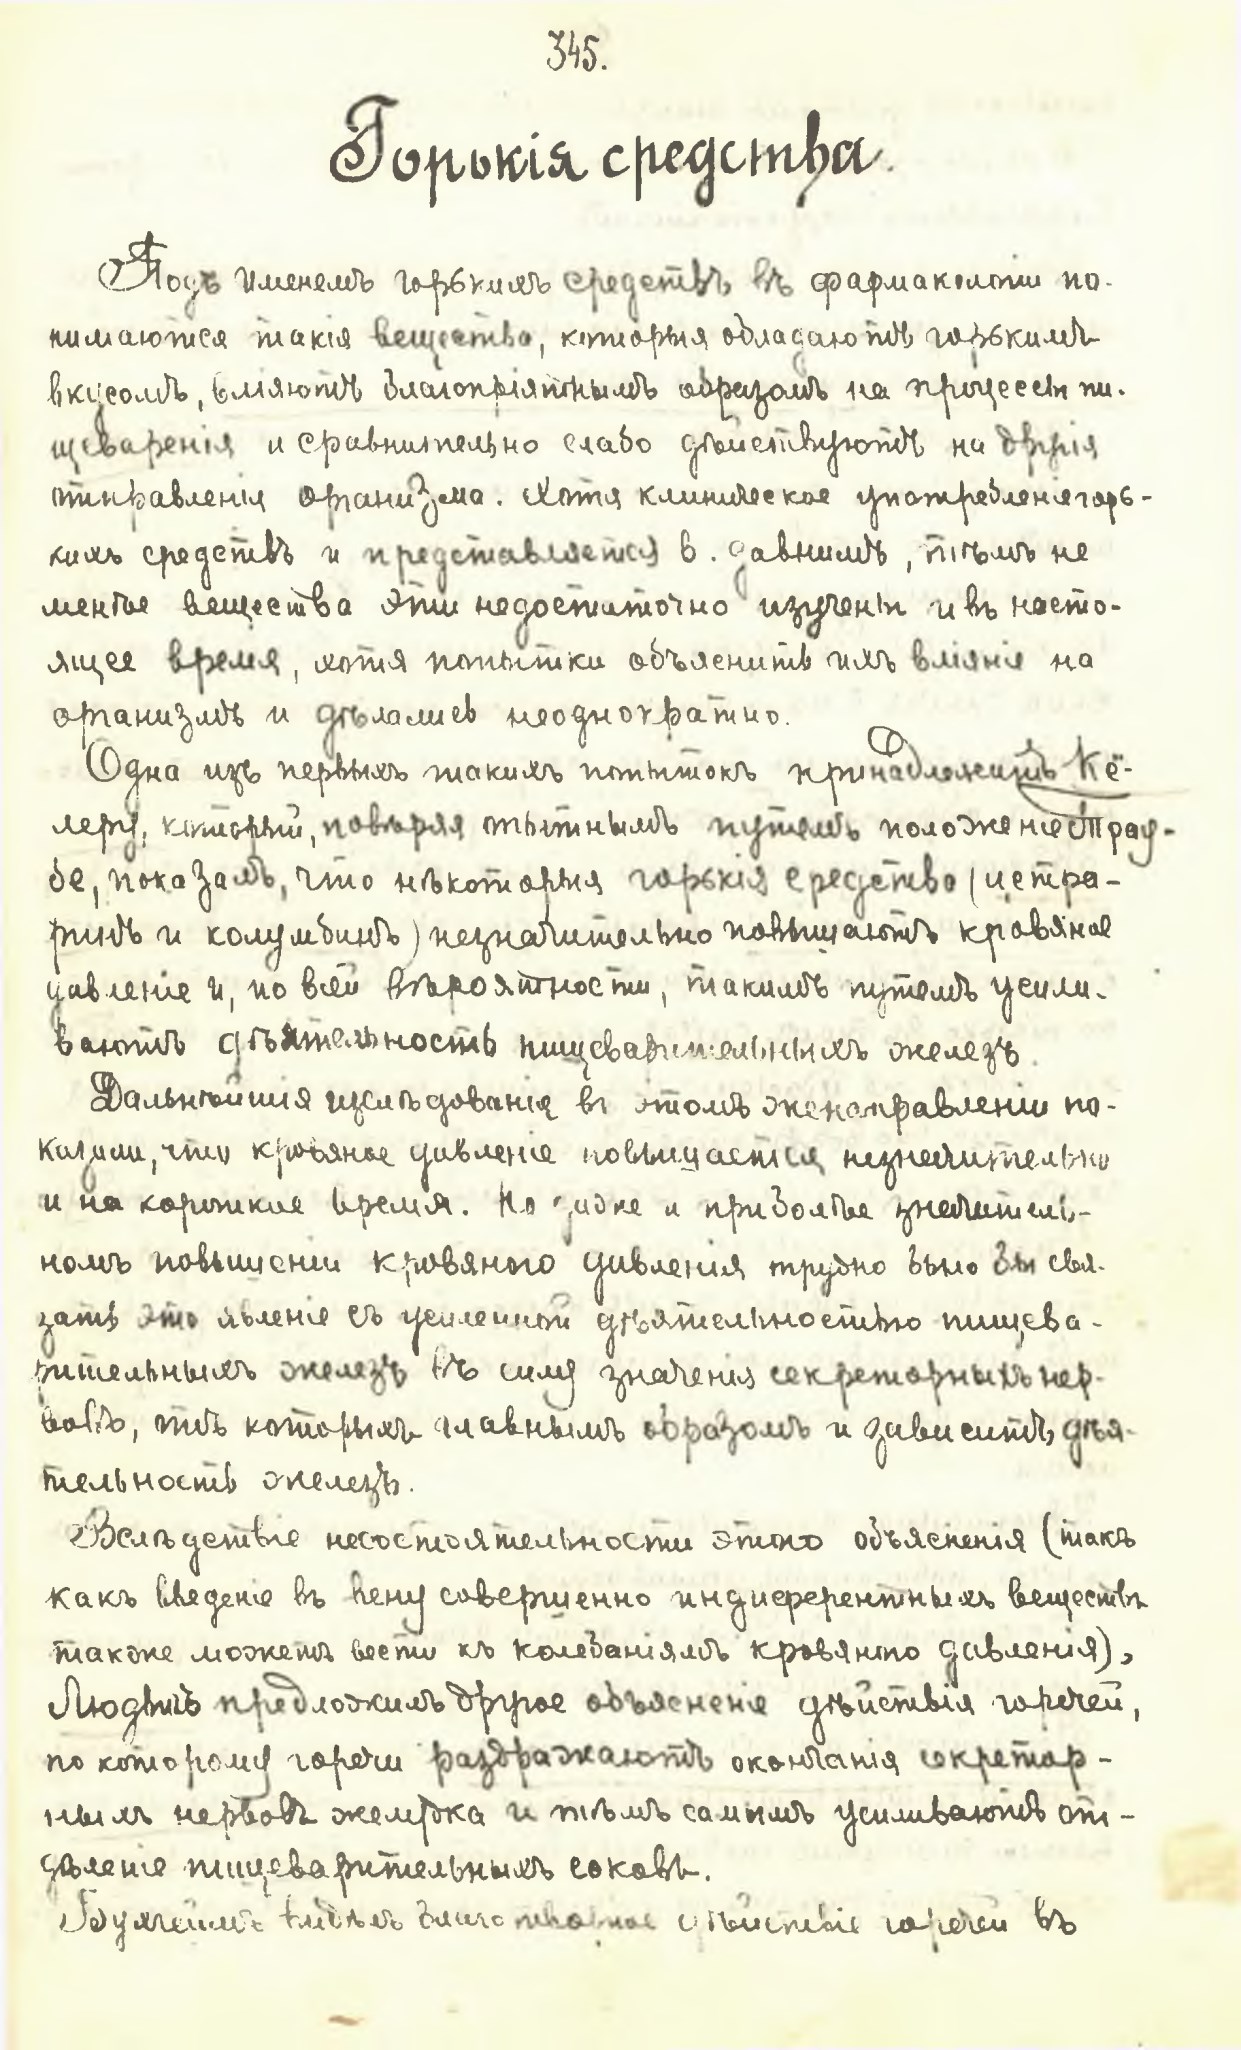 345.
Горькія средства.
Подъ именемъ горькихъ средствъ въ фармакологіи по-
нимаются такія вещества, которыя обладаютъ горькимъ
вкусомъ, вліяютъ благопріятнымъ образомъ на процессы пи-
щеваренія и сравнительно слабо дѣйствуютъ на другія
отправленія организма. Хотя клиническое употребленіе горь-
кихъ средствъ и представляется б. давнимъ, тѣмъ не
менѣе вещества эти недостаточно изучены и въ насто-
ящее время, хотя попытки объяснить ихъ вліяніе на
организмъ и дѣлались неоднократно.
Одна изъ первыхъ такихъ попытокъ принадлежитъ Кё-
леру, который, повѣряя опытнымъ путемъ положеніе Трау-
бе, показалъ, что нѣкоторыя горькія средства (цетра-
ринъ и колумбинъ) незначительно повышаютъ кровяное
давленіе и, по всей вѣроятности, такимъ путемъ усили-
ваютъ дѣятельность пищеварительныхъ железъ.
Дальнѣйшія изслѣдованія въ этомъ же направленіи по-
казали, что кровяное давленіе повышается незначительно
и на короткое время. Но даже и при болѣе значитель-
номъ повышеніи кровяного давленія трудно было бы свя-
зать это явленіе съ усиленной дѣятельностью пищева-
рительныхъ железъ въ силу значенія секреторныхъ нер-
вовъ, отъ которыхъ главнымъ образомъ и зависитъ дѣя-
тельность железъ.
Вслѣдствіе несостоятельности этого объясненія (такъ
какъ введеніе въ вену совершенно индиферентныхъ веществъ
также можетъ вести къ колебаніямъ кровяного давленія),
Людвигъ предложилъ другое объясненіе дѣйствія горечей,
по которому горечи раздражаютъ окончанія секретор-
ныхъ нервовъ желудка и тѣмъ самымъ усиливаютъ от-
дѣленіе пищеварительныхъ соковъ.
Бухгеймъ видѣлъ благотворное дѣйствіе горечей въ